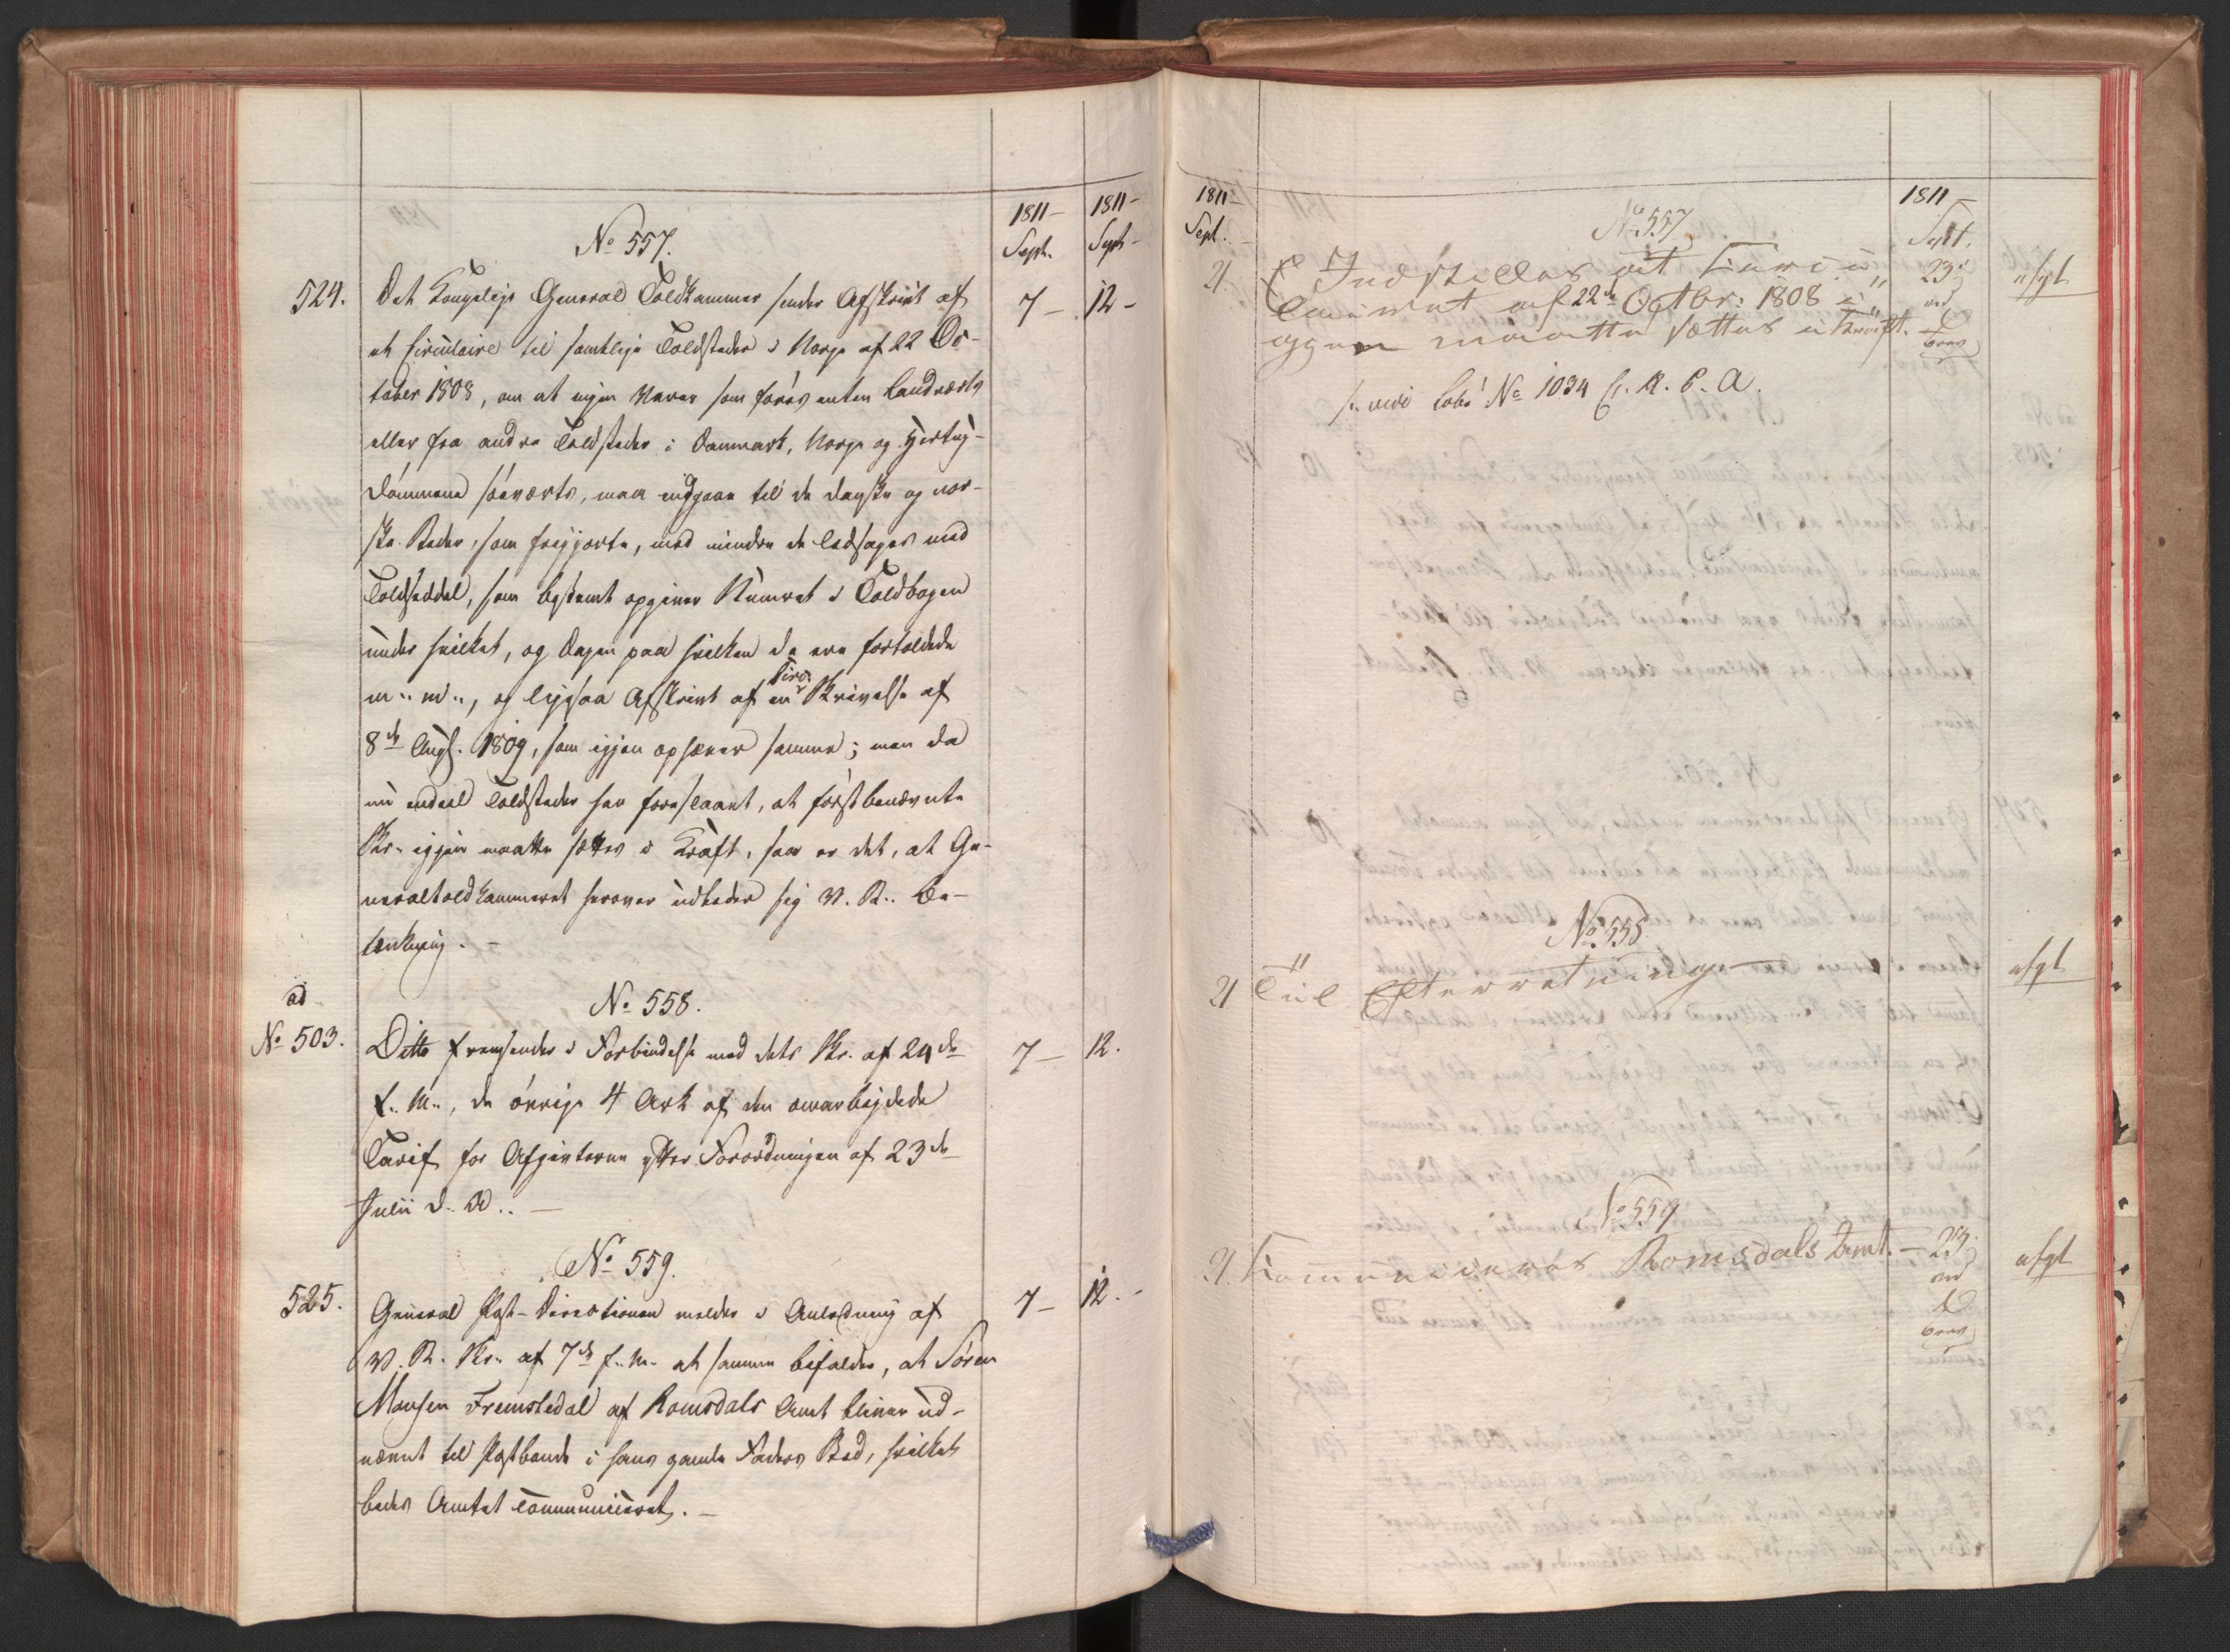 1811 –
1811 –
Sept.
Sept –
No 557.
524.
Det Kongelige General Toldkammer sender Afskrivt af
et Circulaire til samtlige Toldsteder i Norge af 22 Oc-
tober 1808, om at ingen Varer som føres enten landværts
eller fra andre Toldsteder i Danmark, Norge og Hertug-
dømmene søeværts, maa indgaae til de danske og nor-
ske Steder, som frigjorte, med mindre de ledsages med
Toldseddel, som bestemt opgiver Numret i Toldbogen
under hvilket, og Dagen paa hvilken de ere fortoldede
m: m:, og ligesaa Afskrivt af en Circ: Skrivelse af
8de Augs. 1809, som igjen ophæver samme; men da
nu endeel Toldsteder har foreslaaet, at førstbenævnte
Skr. igjen maatte sættes i Kraft, saa er det, at Ge-
neraltoldkammeret herover udbeder sig V. R.. Be-
tænkning. –
7 – 12 –
ad
No 503.
No 558.
Ditto fremsender i Forbindelse med dets Skr. af 24de
f. M., de øvrige 4 Ark af den omarbejdede
Tarif for Afgivterne efter Forordningen af 23de
Julii d. A.. –
7 – 12.
No 559.
525.
General Post-Directionen melder i Anledning af
V. R. Skr. af 7de f. M. at samme befalder, at Søren
Monsen Fremstedal af Romsdals Amt bliver ud-
nævnt til Postbonde i hans gamle Faders Sted, hvilket
bedes Amtet communiceret. –
7 – 12. –
1811 –
Sept.
1811 –
Sept.
No 557
21.
Indstilles at Circu"
lairet af 22de Octbr: 1808 i"
gjen maatte sættes i Kraft.
No 1034 R. C. A.
23
ved
Brev
afgl
No 558
21 Til Efterretning
afgl
No 559
21. Communiceres Romsdals Amt. – 23
ved
Brev
afgl